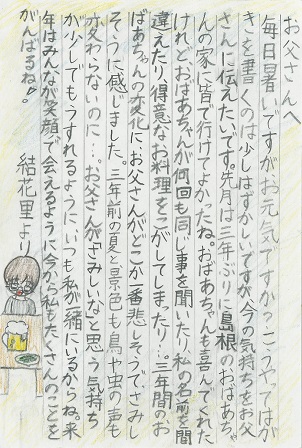 お父さんへ
毎日暑いですがお元気ですか?こうやってはが
きを書くのは少しはずかしいですが、今の気持ちをお父
さんに伝えたいです。先月は三年ぶりに島根のおばあち
ゃんの家に皆で行けてよかったね。おばあちゃんも喜んでくれた
けれど、おばあちゃんが何回も同じ事を聞いたり、私の名前を間
違えたり、得意なお料理をこがしてしまったり…。三年間のお
ばあちゃんの変化に、お父さんがどこか一番悲しそうで、さみし
そうに感じました。三年前の夏と景色も鳥や虫の声も
変わらないのに…。お父さんがさみしいなと思う気持ち
が少しでもうすれるように、いつも私が一緒にいるからね。来
年はみんなが笑顔で会えるように今から私もたくさんのことを
がんばるね!
結花里より